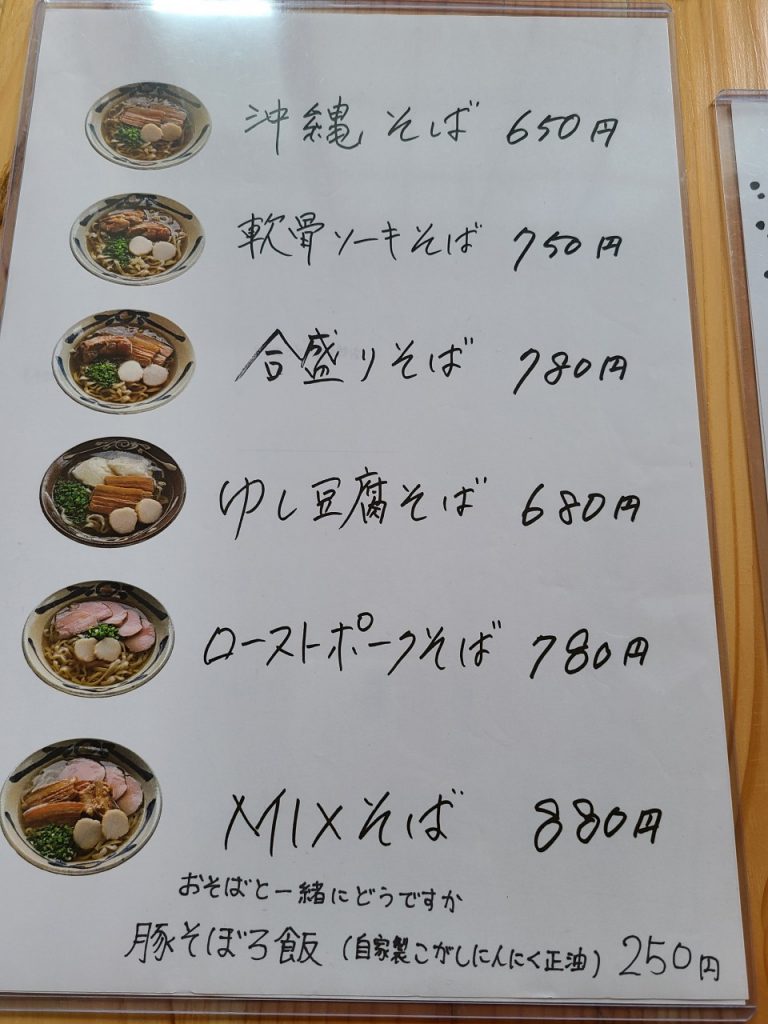 沖縄そば 650円
軟骨ソーキそば 750円
合盛りそば 780円
ゆし豆腐そば 680円
ローストポークそば 780円
MIXそば 880円
おそばと一緒にどうですか
豚そぼろ飯(自家製こがしにんにく正油) 250円